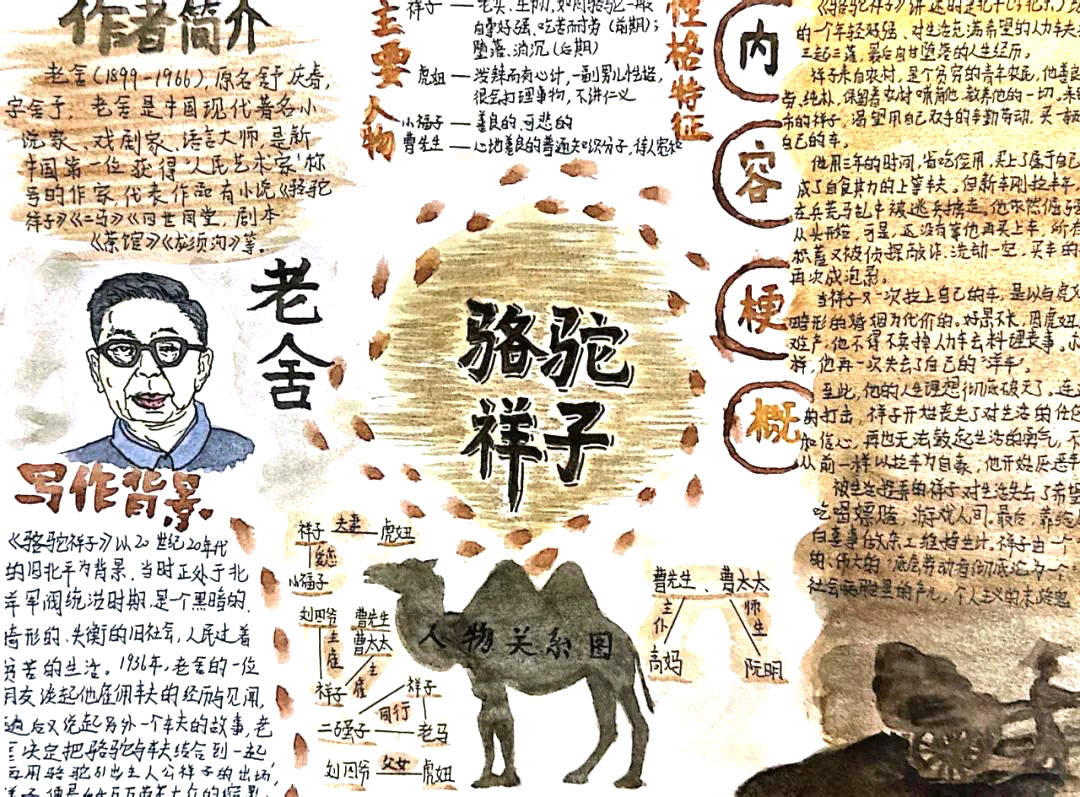 作者简介
老舍(1899-1966),原名舒庆春,
字舍予,老舍是中国现代著名小
说家、戏剧家、语言大师,是新
中国第一位获得"人民艺术家"称
号的作家,代表作品有小说《骆驼
祥子》《二马》《四世同堂》,剧本
《茶馆》《龙须沟》等。
老舍
写作背景
《骆驼祥子》以20世纪20年代
的旧北平为背景,当时正处于北
洋军阀统治时期,是一个黑暗的、
畸形的、失衡的旧社会,人民过着
贫苦的生活。1936年,老舍的一位
朋友谈起他雇佣车夫的经历与见闻,
边后又说起另外一个车夫的故事,老
决定把骆驼与车夫结合到一起,
用骆驼引出主人公祥子的出场,
主要人物
性格特征
祥子 — 老实、坚韧,如同骆驼一般
自尊好强、吃苦耐劳(前期);
堕落、消沉(后期)
虎妞 — 泼辣而有心计,一副男儿性格,
很会打理事物,不讲仁义
小福子 — 善良的、可悲的
曹先生 — 心地善良的普通知识分子,待人宽和
骆驼
祥子
人物关系图
祥子 夫妻 虎妞
变态
小福子
刘四爷 曹先生
曹太太
主雇
主雇
祥子
祥子
同行
二强子 老马
刘四爷 父女 虎妞
曹先生、曹太太
主仆
师生
高妈 阮明
内容梗概
《骆驼祥子》讲述的是北平
的一个年轻好强、对生活充满希望的人力车夫
三起三落,最后自甘堕落的人生经历。
祥子来自农村,是个贫穷的青年农民,他善
劳,纯朴,保留着农村哺育他、教养他的一切。来
市的祥子,渴望用自己双手的辛勤劳动,买一辆
自己的车。
他用三年的时间,省吃俭用,买上了属于自己
成了自食其力的上等车夫。但新车刚拉半年,
在兵荒马乱中被逃兵掳走。他依然倔强
从头开始,可是,还没有等他再买上车,所有
积蓄又被侦探敲诈、洗劫一空,买车的
再次成泡影。
当祥子又一次拉上自己的车,是以与虎妞
畸形的婚姻为代价的。好景不长,因虎妞
难产,他不得不卖掉人力车去料理丧事。
样,他再一次失去了自己的"洋车"。
至此,他的人生理想彻底破灭了。连
的打击,祥子开始丧失了对生活的任何
和信心,再也无法鼓起生活的勇气,不
从前一样以拉车为自豪,他开始厌恶干
被生活捉弄的祥子对生活失去了希望
吃喝嫖赌,游戏人间。最后,靠给
白喜事做杂工维持生计。祥子由一个
的、伟大的"底层劳动者彻底沦为一个"
社会病胎里的产儿,个人主义的末路鬼